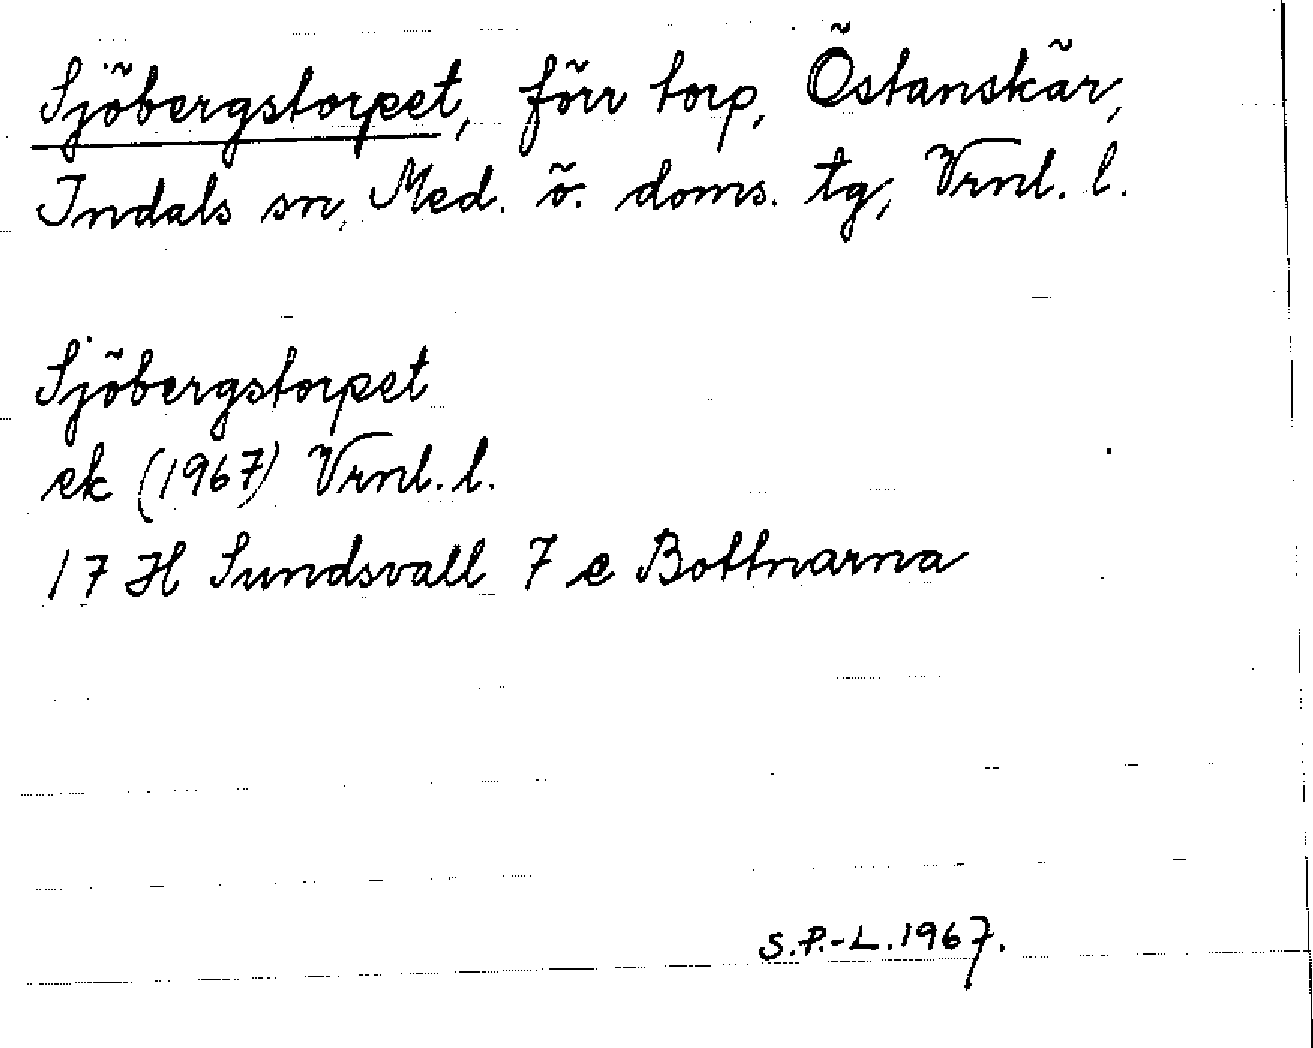 Sjöbergstorpet, förr torp, Östanskär,
Indals sn, Med. ö. doms. tg, Vrnl. l.
Sjöbergstorpet
ek (1967) Vrnl. l.
17 H Sundsvall 7 e Bottnarna
S.P.-L. 1967.